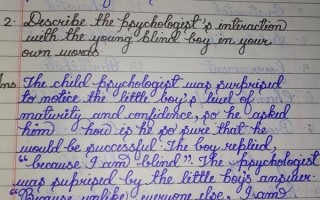 2. Describe the psychologist's interaction
with the young blind boy in your
own words.
Ans The child psychologist was surprised
to notice the little boy's level of
maturity and confidence, so he asked
him how is he so sure that he
would be successful. The boy replied,
"because I am blind". The psychologist
was suprised by the little boy's answer.
"Because unlike everyone else, I am